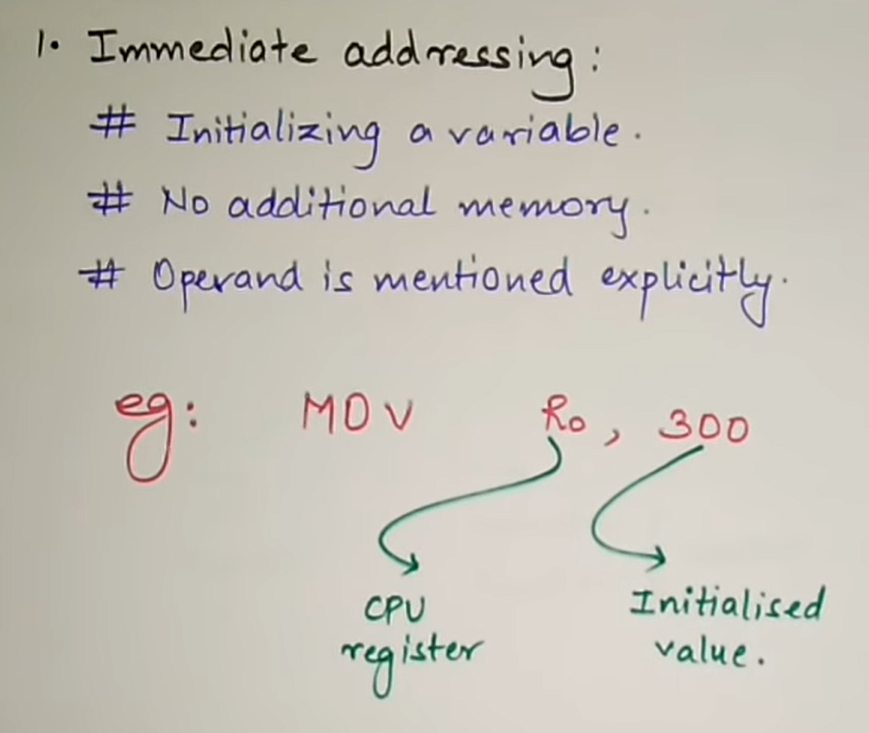 1. Immediate addressing:
# Initializing a variable.
# No additional memory.
# Operand is mentioned explicitly.
eg: MOV R₀, 300
CPU register
Initialised value.